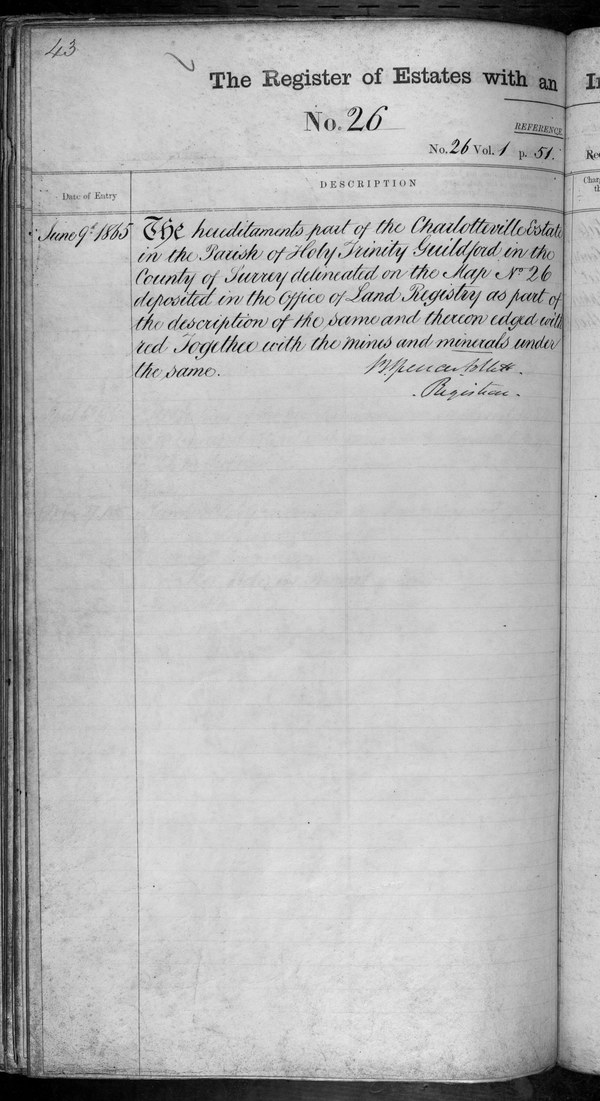 43
The Register of Estates with an
No. 26
REFERENCE
No. 26 Vol. 1 p. 51.
Date of Entry
DESCRIPTION
June 9th 1865 The hereditaments part of the Charlotteville Estate
in the Parish of Holy Trinity Guildford in the
County of Surrey delineated on the Map No 26
deposited in the Office of Land Registry as part of
the description of the same and thereon edged with
red Together with the mines and minerals under
the same.
Registrar.